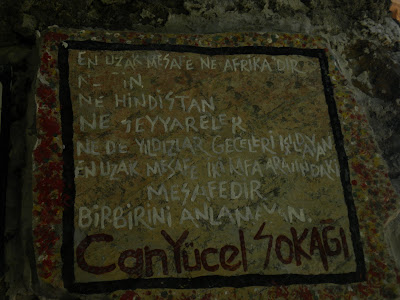 EN UZAK MESAFE NE AFRİKADIR
NE HİNDİSTAN
NE SEYYARELER
NE DE YILDIZLAR GECELERİ IŞILDAYAN
EN UZAK MESAFE İKİ KAFA ARASINDAKİ
MESAFEDİR
BİRBİRİNİ ANLAMAYAN.
CanYücel SOKAĞI